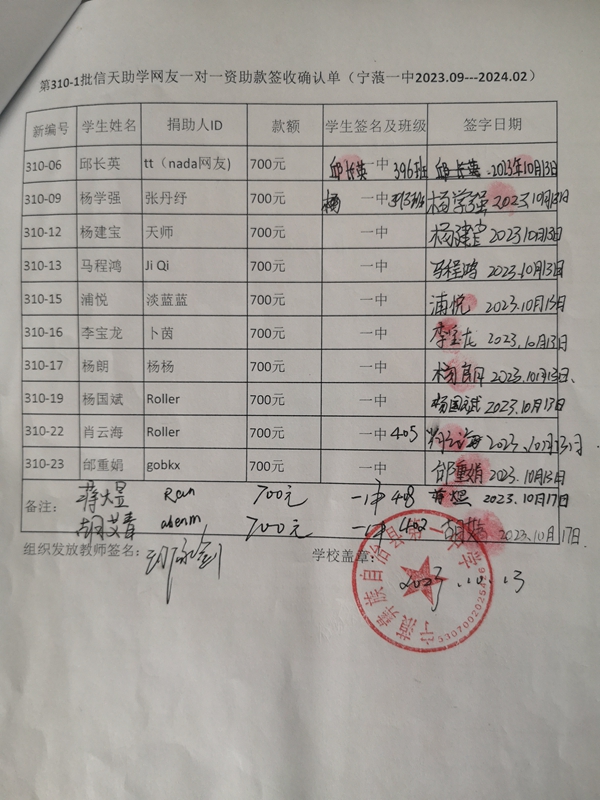 第310-1批信天助学网友一对一资助款签收确认单（宁蒗一中2023.09---2024.02）
新编号 学生姓名 捐助人ID 款额 学生签名及班级 签字日期
310-06 邱长英 tt（nada网友) 700元 邱长英 一中 396班 邱长英 2023年10月13日
310-09 杨学强 张丹纾 700元 杨 一中 393班 杨学强 2023.10月13日
310-12 杨建宝 天师 700元 一中 杨建宝 2023.10月13日
310-13 马程鸿 Ji Qi 700元 一中 马程鸿 2023.10月13日
310-15 浦悦 淡蓝蓝 700元 一中 浦悦 2023.10月13日
310-16 李宝龙 卜茵 700元 一中 李宝龙 2023.10月13日
310-17 杨朗 杨杨 700元 一中 杨朗 2023.10月13日.
310-19 杨国斌 Roller 700元 一中 杨国斌 2023.10月13日
310-22 肖云海 Roller 700元 一中 405 2023.10月13日
310-23 邰重娟 gobkx 700元 一中 邰重娟 2023.10月13日
备注： 700元 一中 408 2023.10月17日
胡艾青 700元 一中 402 2023.10月17日.
组织发放教师签名： 学校盖章：
2023.10.13
宁蒗彝族自治县第一中学
5307002025